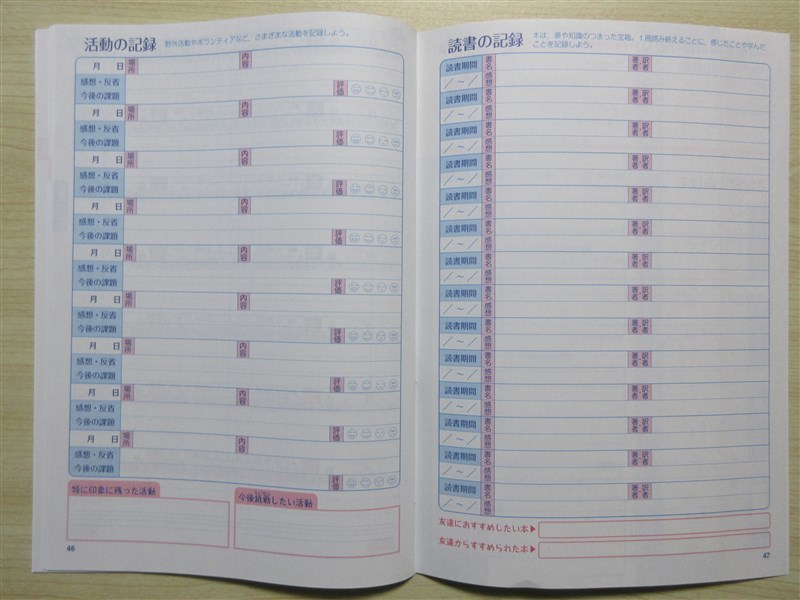 活動の記録 野外活動やボランティアなど、さまざまな活動を記録しよう。
月 日 場所 内容
感想・反省
今後の課題 評価
月 日 場所 内容
感想・反省
今後の課題 評価
月 日 場所 内容
感想・反省
今後の課題 評価
月 日 場所 内容
感想・反省
今後の課題 評価
月 日 場所 内容
感想・反省
今後の課題 評価
月 日 場所 内容
感想・反省
今後の課題 評価
月 日 場所 内容
感想・反省
今後の課題 評価
月 日 場所 内容
感想・反省
今後の課題 評価
月 日 場所 内容
感想・反省
今後の課題 評価
特に印象に残った活動
今後挑戦したい活動
46
読書の記録 本は、夢や知識のつまった宝箱。1冊読み終えるごとに、感じたことや学んだ
ことを記録しよう。
読書期間 書名 著者 訳者
／～／ 感想
読書期間 書名 著者 訳者
／～／ 感想
読書期間 書名 著者 訳者
／～／ 感想
読書期間 書名 著者 訳者
／～／ 感想
読書期間 書名 著者 訳者
／～／ 感想
読書期間 書名 著者 訳者
／～／ 感想
読書期間 書名 著者 訳者
／～／ 感想
読書期間 書名 著者 訳者
／～／ 感想
読書期間 書名 著者 訳者
／～／ 感想
読書期間 書名 著者 訳者
／～／ 感想
読書期間 書名 著者 訳者
／～／ 感想
読書期間 書名 著者 訳者
／～／ 感想
読書期間 書名 著者 訳者
／～／ 感想
読書期間 書名 著者 訳者
／～／ 感想
友達におすすめしたい本▶
友達からすすめられた本▶
47